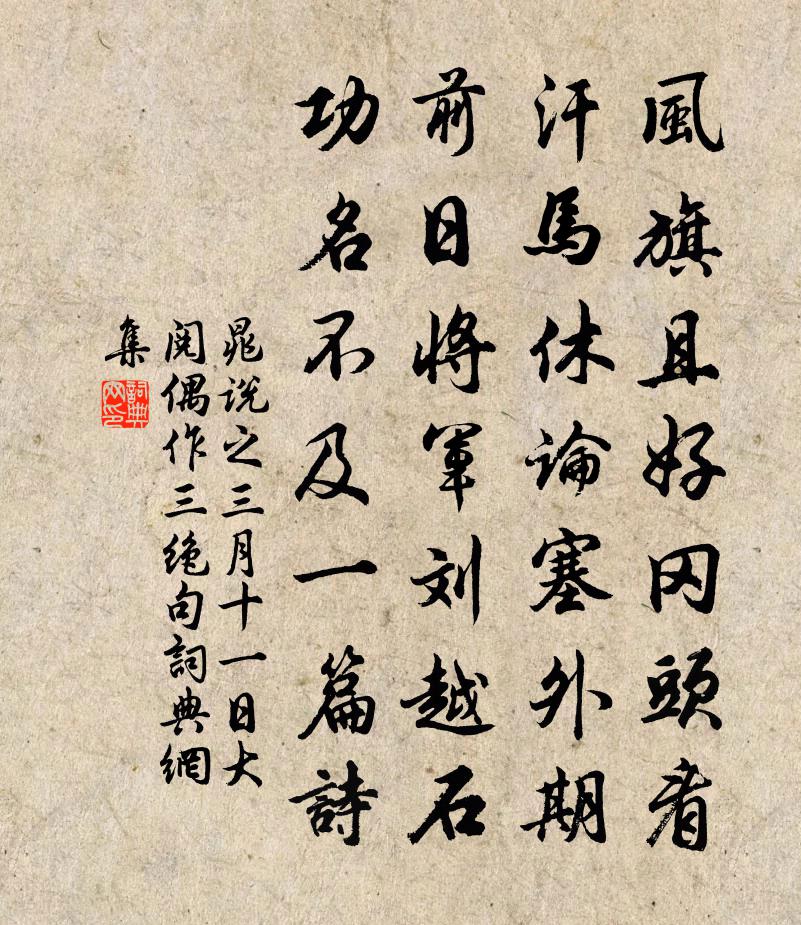 風旗且好冈頭看
汗馬休論塞外期
前日將軍刘越石
功名不及一篇詩
晁说之三月十一日大
阅偶作三绝句詞典網
集
詞典
网印